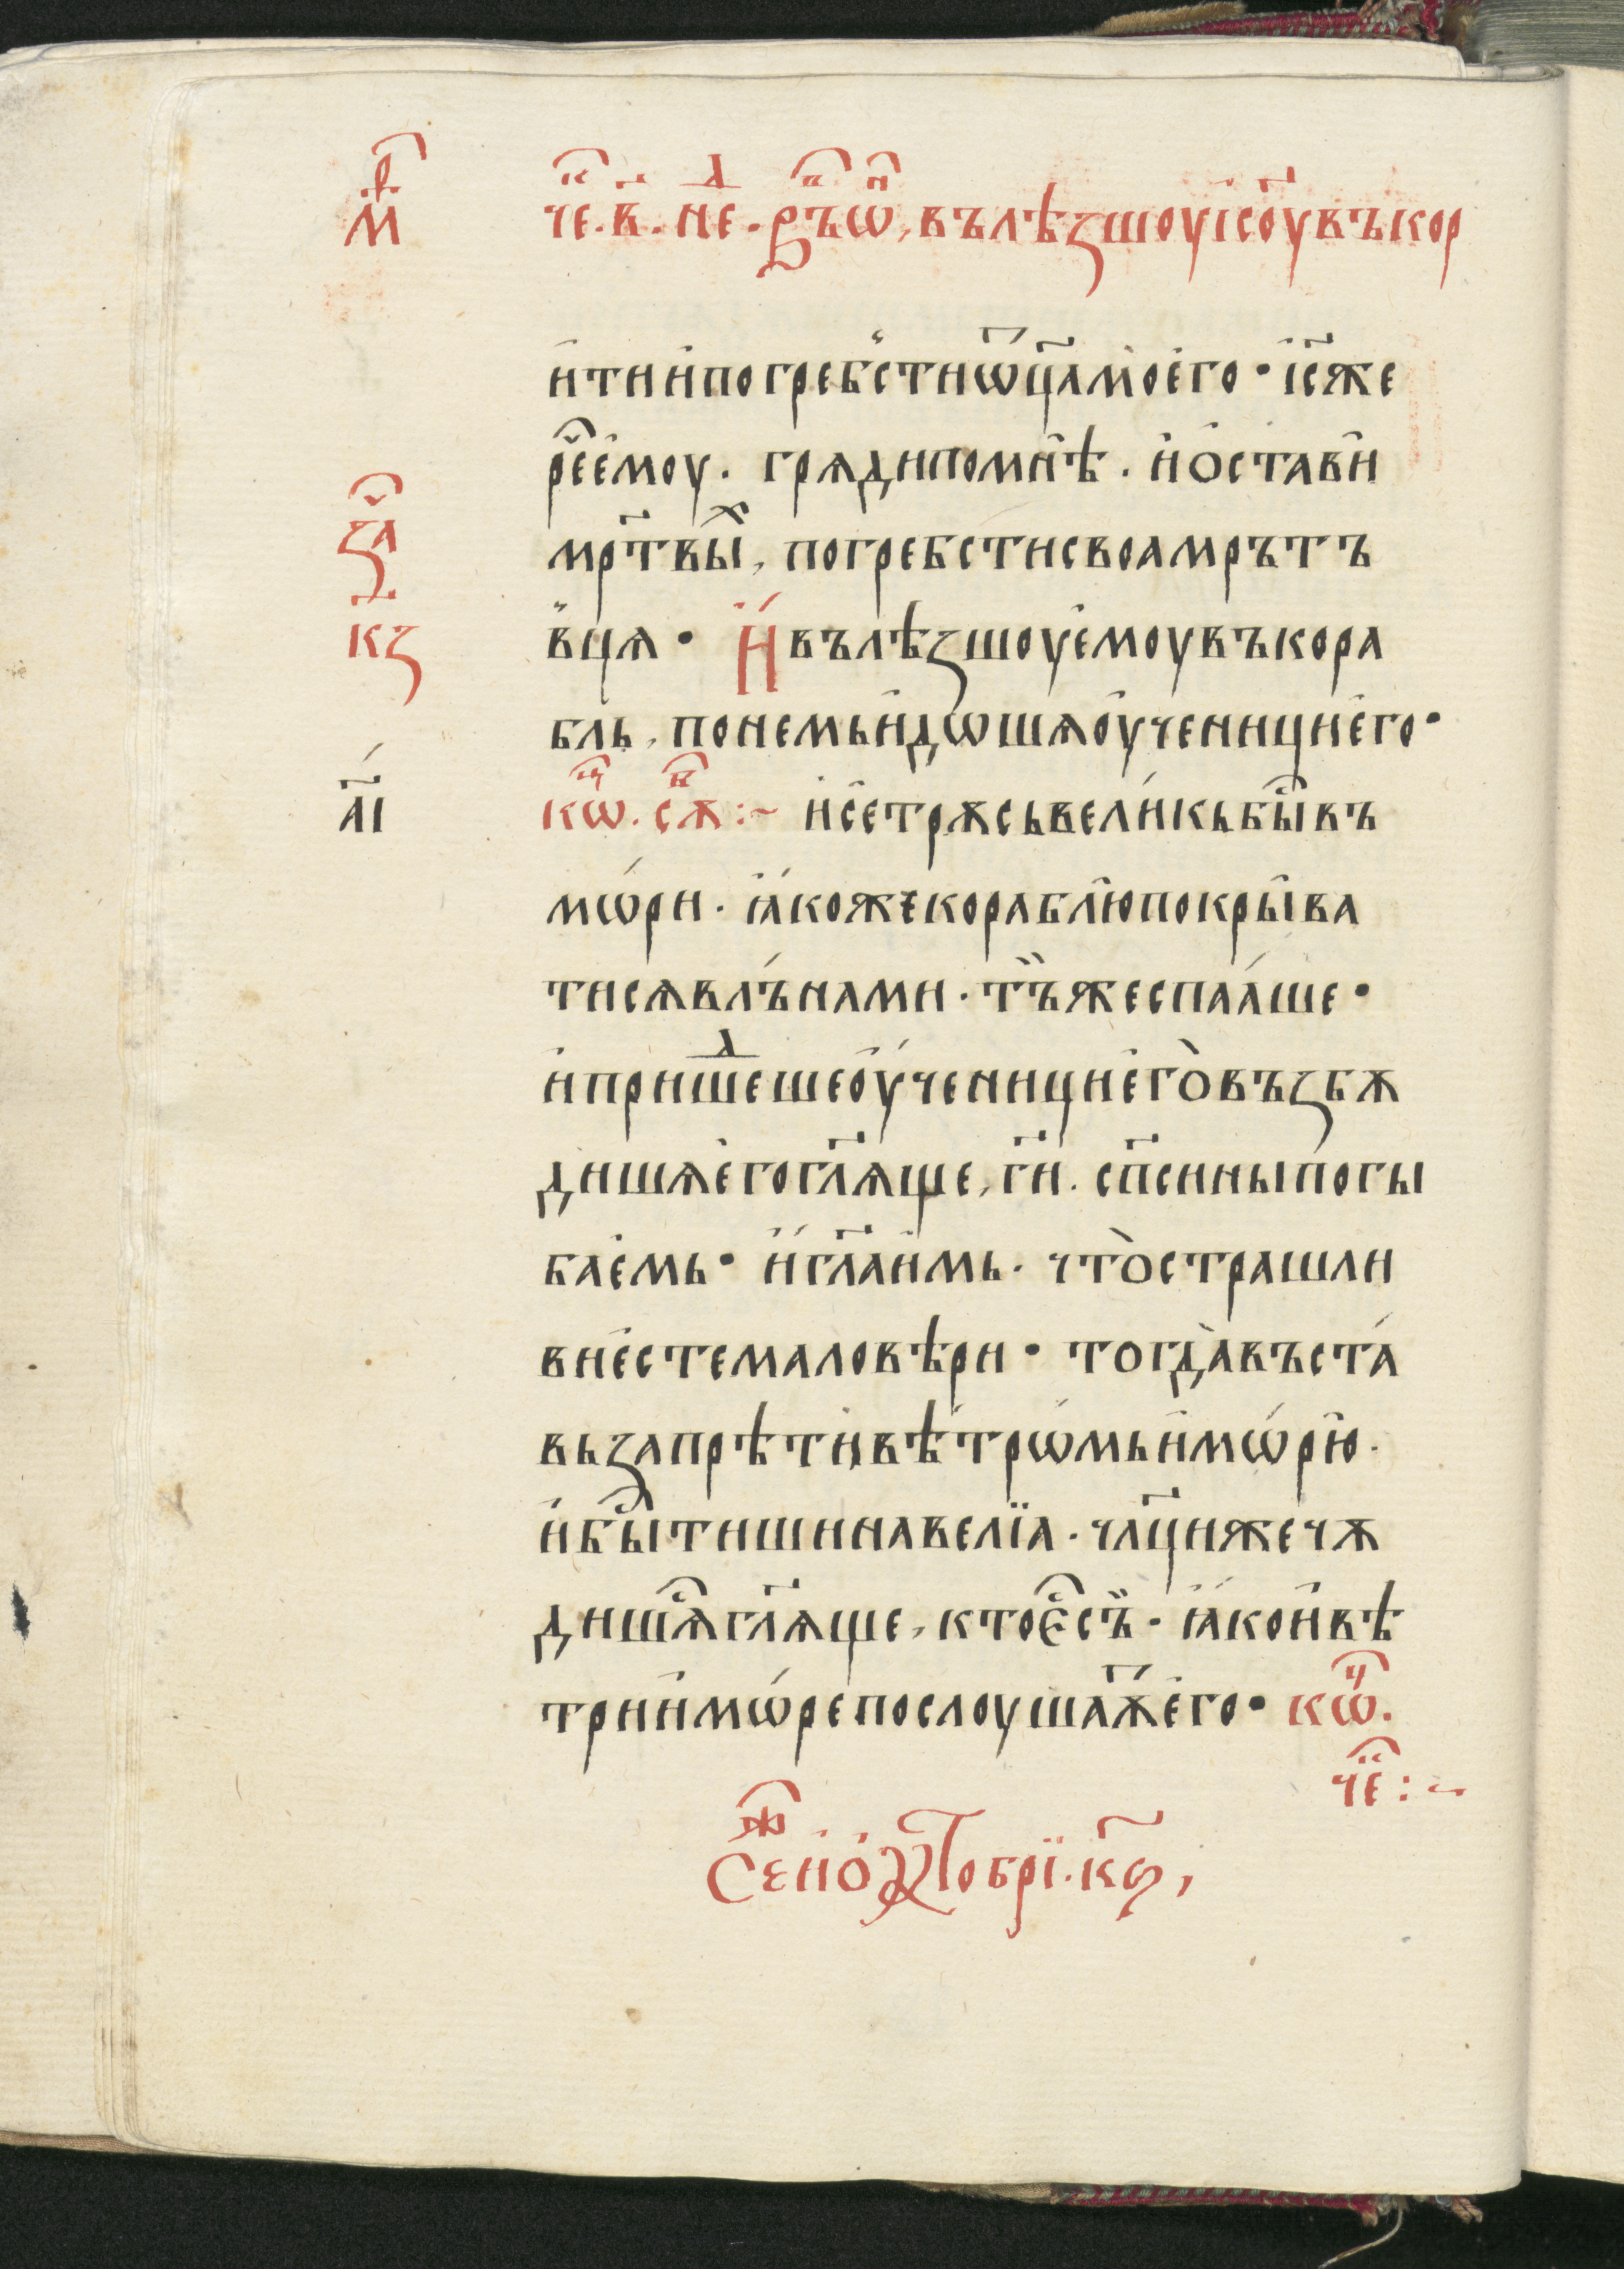 м҃р че҃к. в҃. нед. рⷱ҇ъ ѡн҃, вълѣзшоу і҆с҃оу въ кор
и҆ти и҆ погребсти ѿц҃а моего҆ • і҆с҃ же
рѐ҃ е҆моу. гряди по мнѣ. и҆ остави
мр҃твыⷯ, погребсти своа мрътъ
вця • И҆ вълѣзшоу е҆моу въ кора
зач҃а
к҃з
бль, по немь и҆дѡшѧ оу҆ченици е҆го •
а҃і
кѡнц҃. сѫв҃ :~ и҆ се трѫсь вели́кь бы҃ въ
мѡ́ри. ꙗ҆́коже кораблю покрыва
тисѧ влъ́нами. тъ̏ же спаа́ше •
и҆ пришеⷣше оу҆́ченици е҆го̀ възбѫ
дишѧ е҆го гл҃ѧще, г҃и. сп҃си ны погы
бае҆мь • и҆ гл҃а и҆мь. что̀ страшли
ви е҆сте маловѣри • тогда̀ въста́
вь запрѣти вѣтрѡ́мь и҆ мѡ́рю.
и҆ быⷭ҇ тишина веліа. чл҃ци же чѫ
дишѧⷭ҇ гл҃ѧще, кто є҆ⷭ҇ съ̏. ꙗ҆́ко и҆ вѣ
три и҆ мѡ́ре послоушаѫ҃ е҆го • кѡнц҃.
чек҃ :~
Сеж҃ и҆ о҆ктобрї. к҃ѕ,